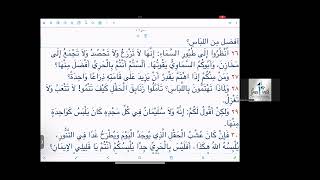 أَفْضَلَ مِنَ اللِّبَاسِ؟
٢٦ اُنْظُرُوا إِلَى طُيُورِ السَّمَاءِ: إِنَّهَا لَا تَزْرَعُ وَلَا تَحْصُدُ وَلَا تَجْمَعُ إِلَى
مَخَازِنَ، وَأَبُوكُمُ السَّمَاوِيُّ يَقُوتُهَا. أَلَسْتُمْ أَنْتُمْ بِالْحَرِيِّ أَفْضَلَ مِنْهَا؟
٢٧ وَمَنْ مِنْكُمْ إِذَا اهْتَمَّ يَقْدِرُ أَنْ يَزِيدَ عَلَى قَامَتِهِ ذِرَاعًا وَاحِدَةً؟
٢٨ وَلِمَاذَا تَهْتَمُّونَ بِاللِّبَاسِ؟ تَأَمَّلُوا زَنَابِقَ الْحَقْلِ كَيْفَ تَنْمُو! لَا تَتْعَبُ وَلَا
تَغْزِلُ.
٢٩ وَلكِنْ أَقُولُ لَكُمْ: إِنَّهُ وَلَا سُلَيْمَانُ فِي كُلِّ مَجْدِهِ كَانَ يَلْبَسُ كَوَاحِدَةٍ
مِنْهَا.
٣٠ فَإِنْ كَانَ عُشْبُ الْحَقْلِ الَّذِي يُوجَدُ الْيَوْمَ وَيُطْرَحُ غَدًا فِي التَّنُّورِ،
يُلْبِسُهُ اللهُ هكَذَا، أَفَلَيْسَ بِالْحَرِيِّ جِدًّا يُلْبِسُكُمْ أَنْتُمْ يَا قَلِيلِي الْإِيمَانِ؟